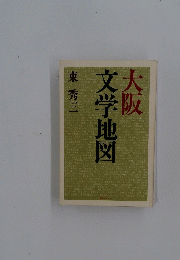 大阪
文学地図
東 秀三